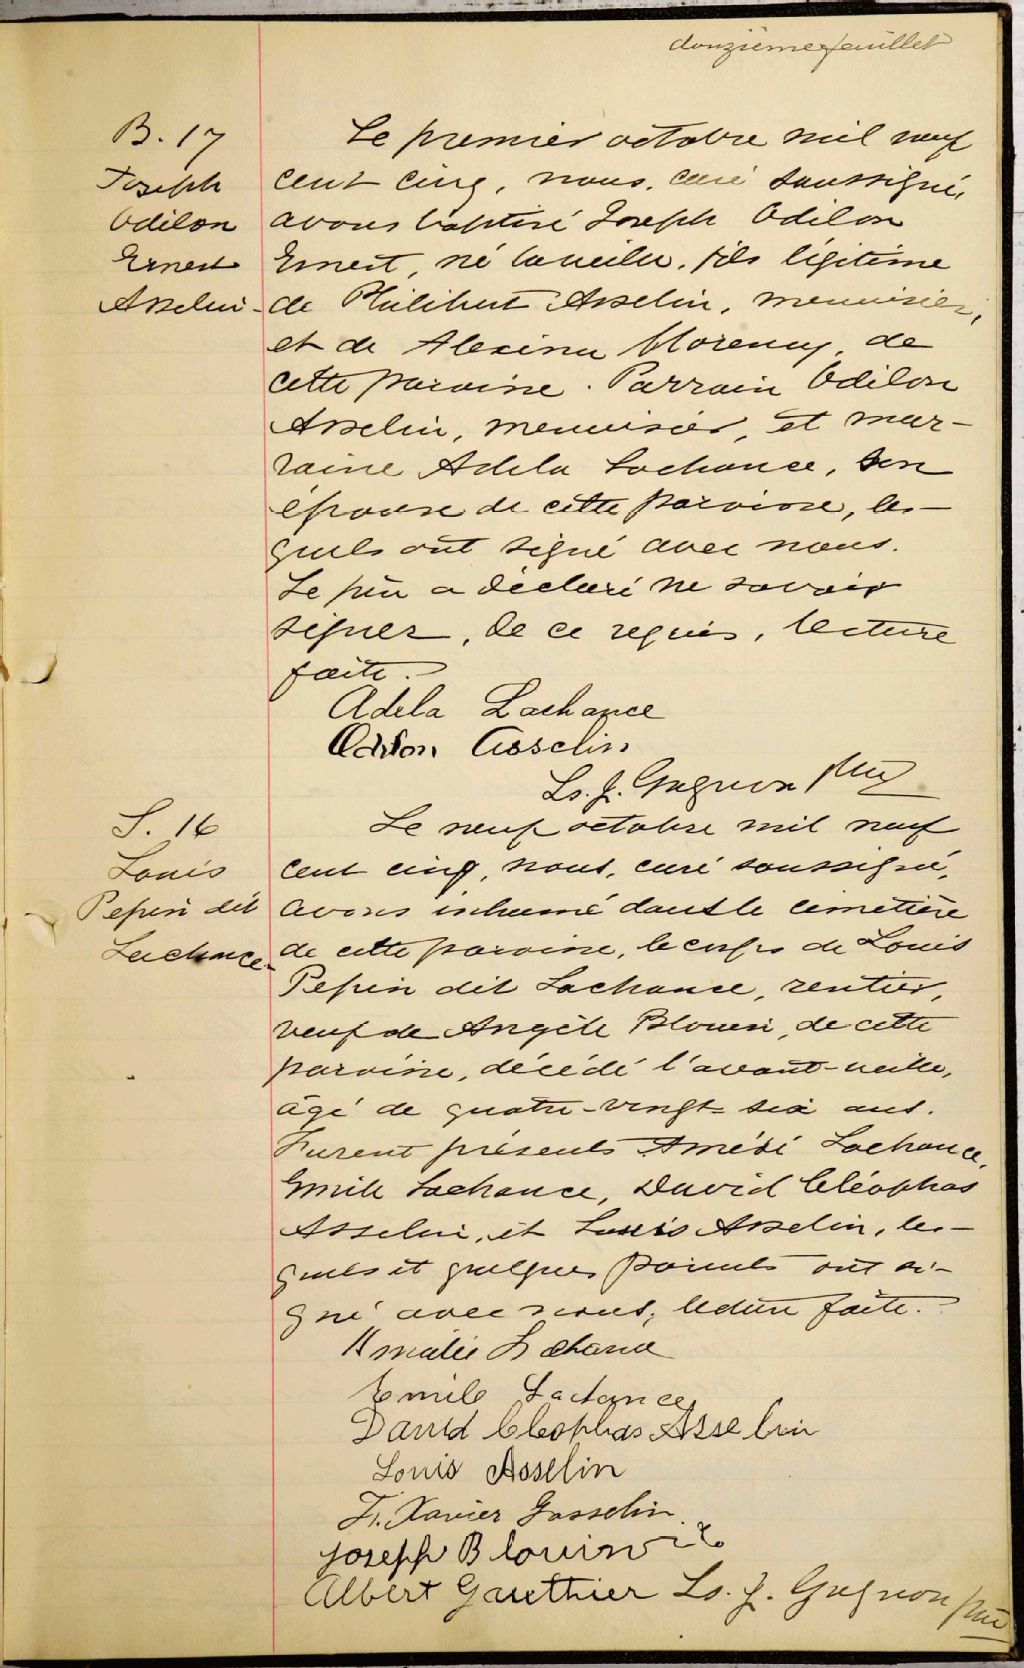 douzième feuillet
B. 17
Joseph
Odilon
Ernest
Asselin
Le premier octobre mil neuf
cent cinq, nous, curé soussigné,
avons baptisé Joseph Odilon
Ernest, né la veille, fils légitime
de Philibert Asselin, menuisier,
et de Alexina Morency, de
cette paroisse. Parrain Odilon
Asselin, menuisier, et mar-
raine Adela Lachance, son
épouse de cette paroisse, les-
quels ont signé avec nous.
Le père a déclaré ne savoir
signer, de ce requis, lecture
faite.
Adela Lachance
Odilon Asselin
Ls. J. Gagnon ptre
S. 16
Louis
Pepin dit
Lachance
Le neuf octobre mil neuf
cent cinq, nous, curé soussigné,
avons inhumé dans le cimetière
de cette paroisse, le corps de Louis
Pepin dit Lachance, rentier,
veuf de Angèle Blouin, de cette
paroisse, décédé l'avant-veille,
âgé de quatre-vingt-six ans.
Furent présents Amédé Lachance,
Emile Lachance, David Cléophas
Asselin, et Louis Asselin, les-
quels et quelques parents ont si-
gné avec nous, lecture faite.
Lachance
Emile Lachance
David Cleophas Asselin
Louis Asselin
F. Xavier Gosselin
Joseph Blouin
Albert Gauthier Ls. J. Gagnon ptre